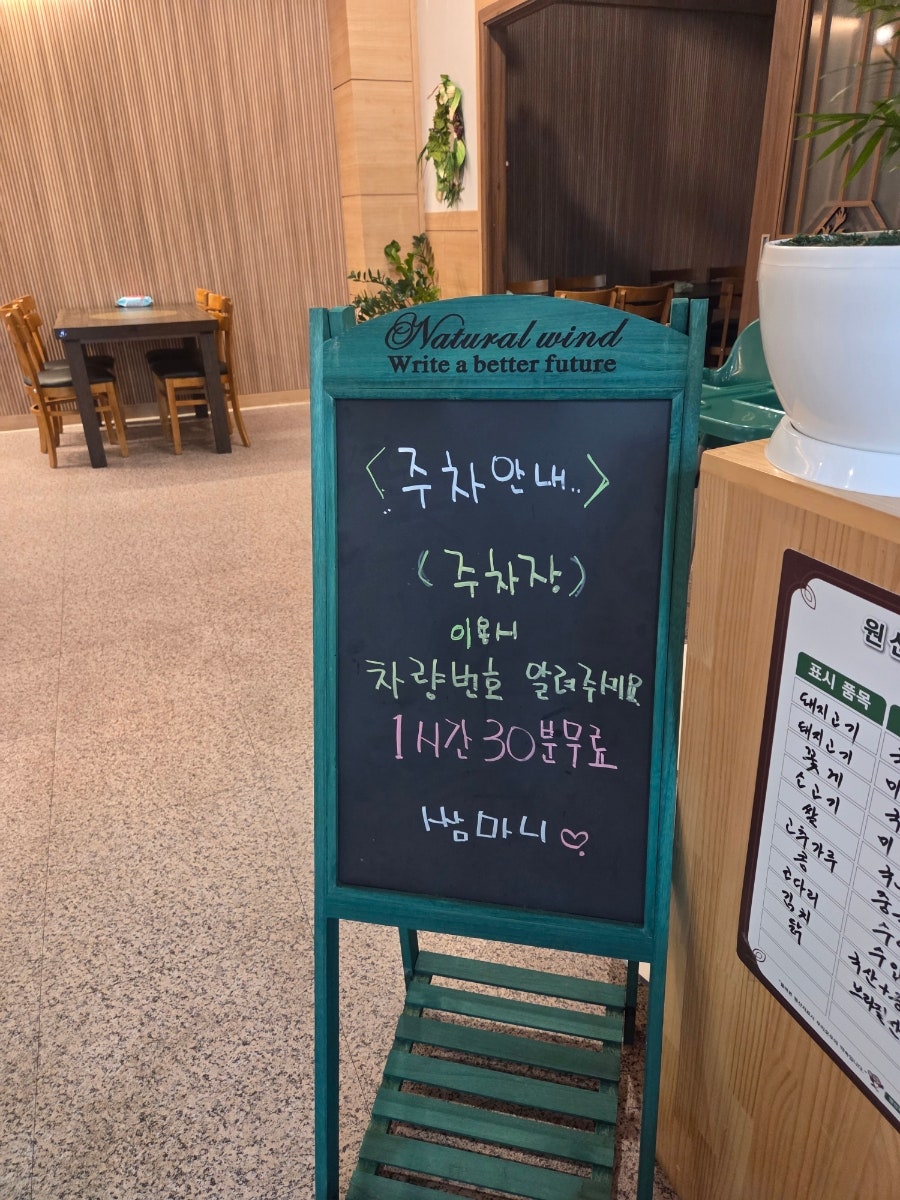 Natural wind
Write a better future
<주차안내..>
(주차장)
이용시
차량번호 알려주세요
1시간 30분무료
쌈마니♡
원산
표시 품목
돼지고기
돼지고기
꽃게
소고기
쌀
고춧가루
콩
코다리
김치
닭
국산+중